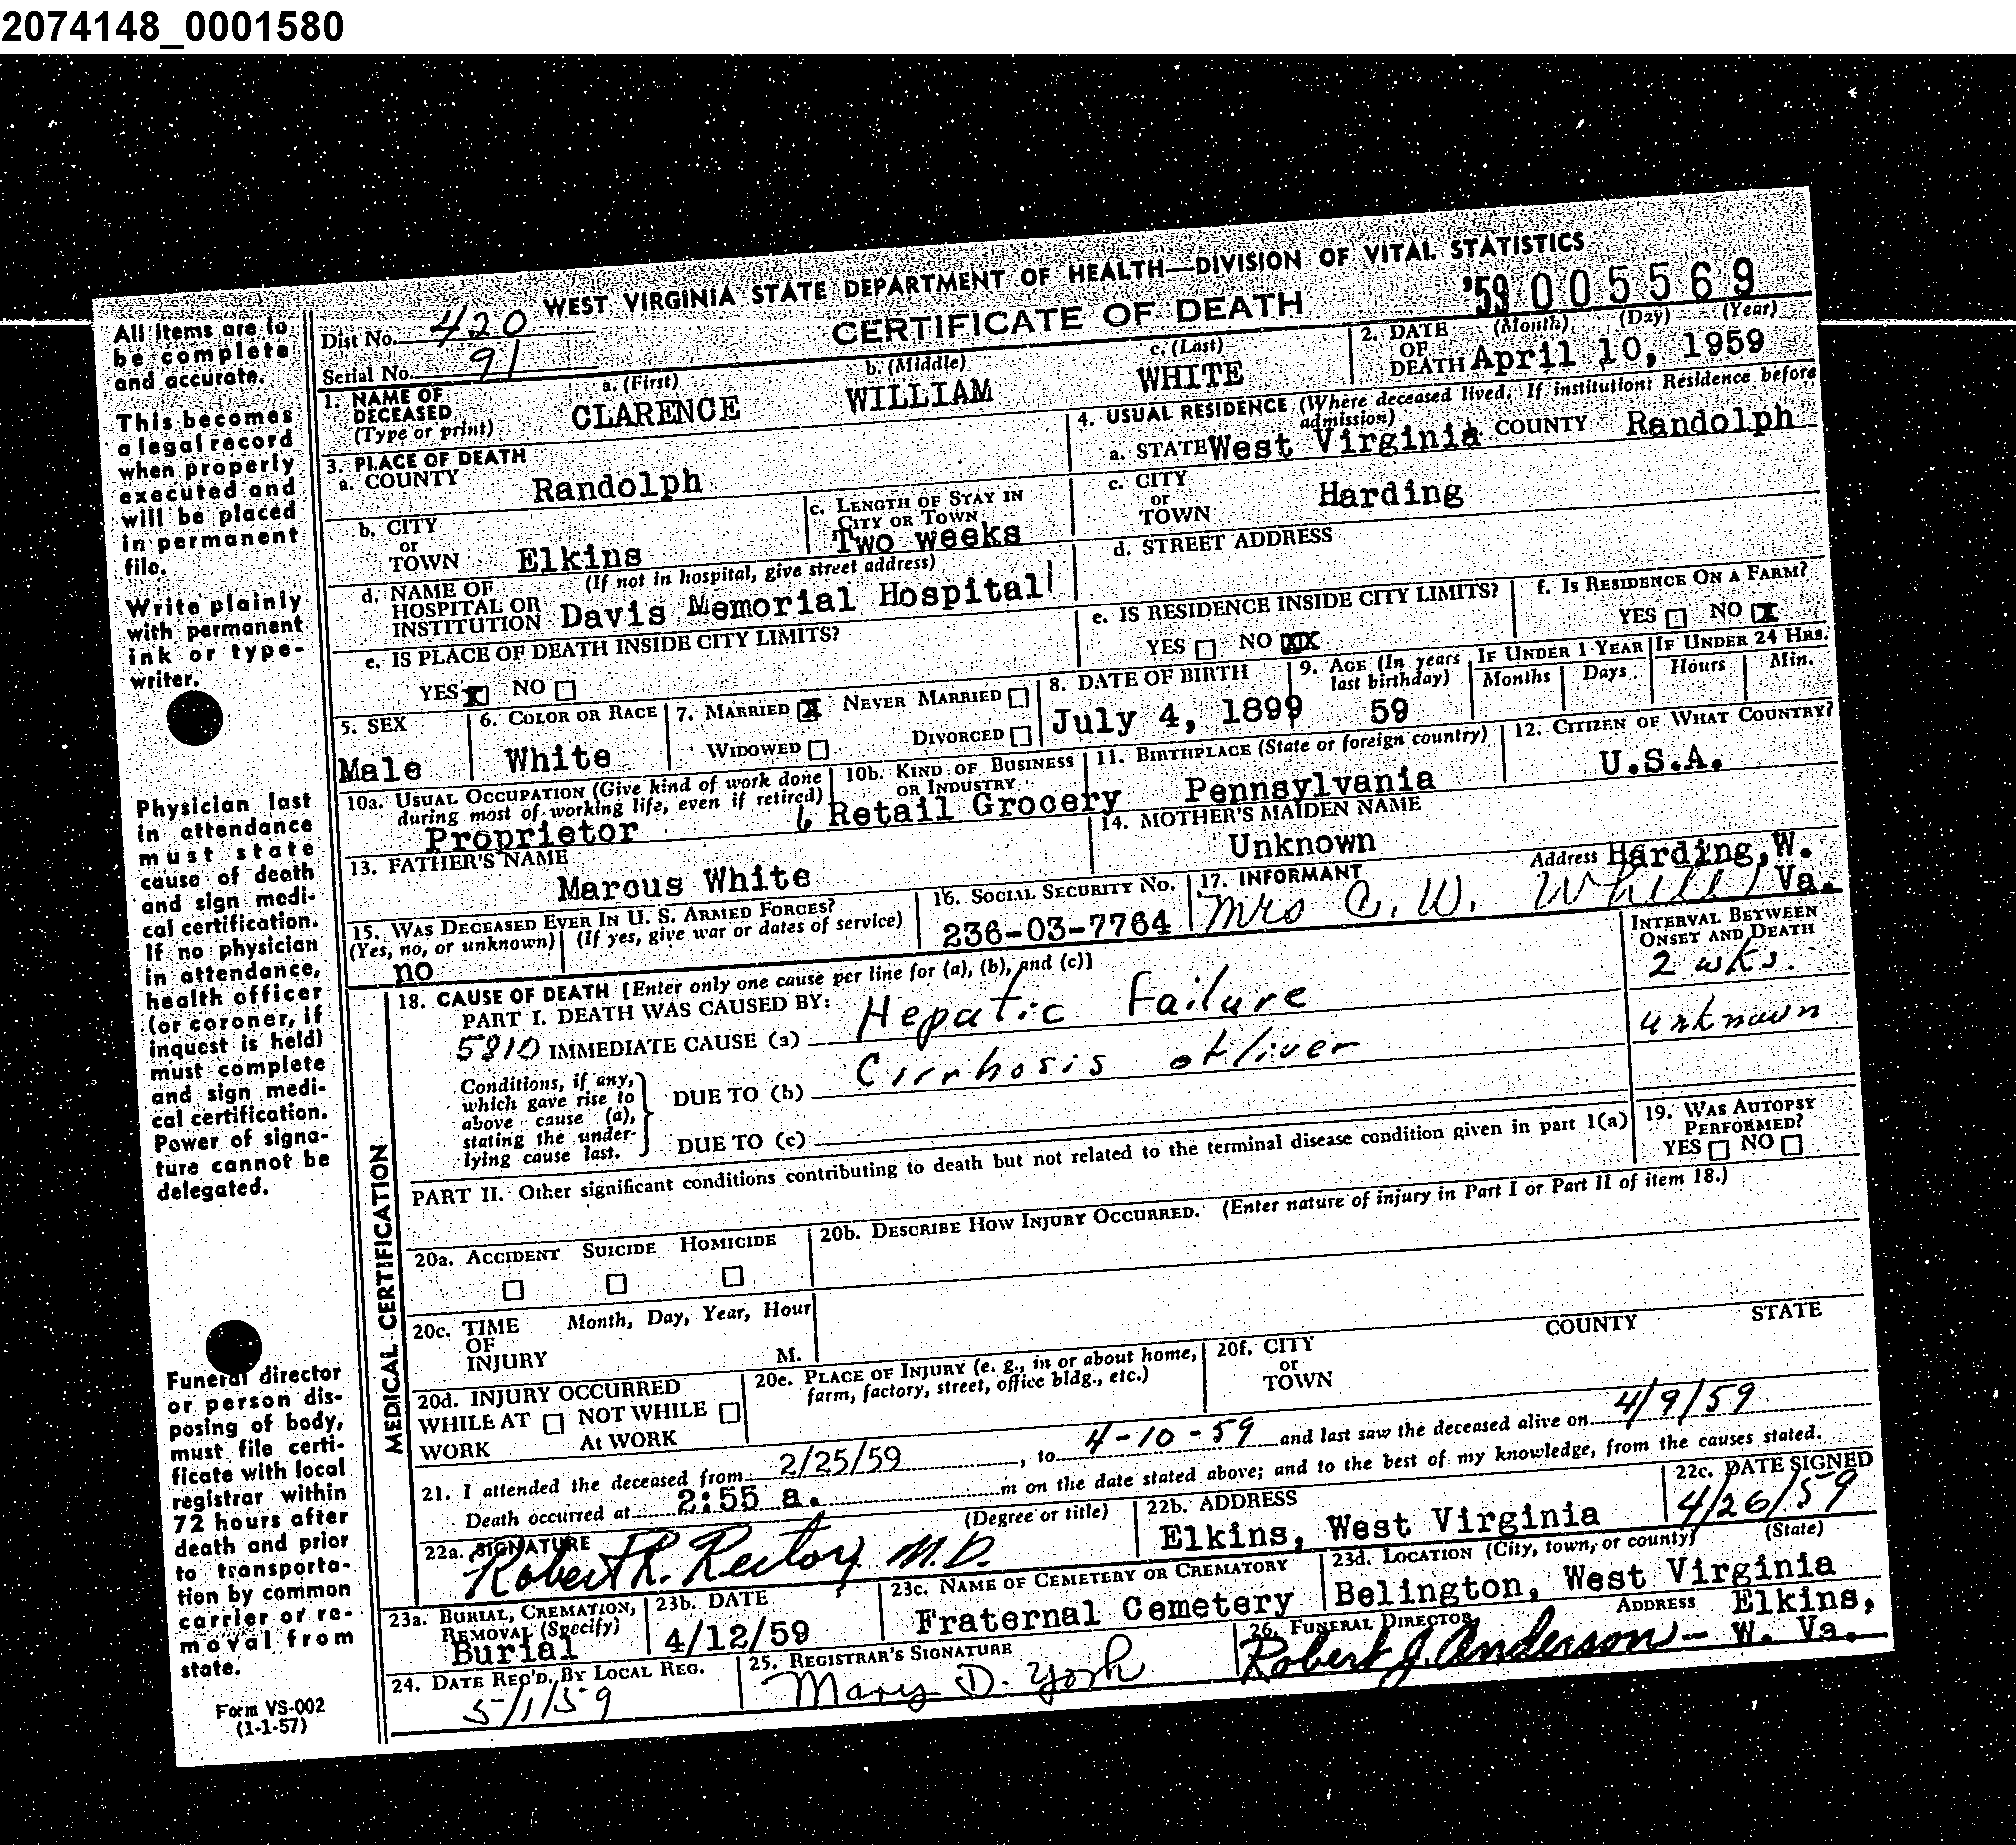 2074148_0001580
WEST VIRGINIA STATE DEPARTMENT OF HEALTH—DIVISION OF VITAL STATISTICS
CERTIFICATE OF DEATH
'59 005569
Dist No. 420
Serial No. 91
1. NAME OF DECEASED (Type or print)
a. (First) CLARENCE
b. (Middle) WILLIAM
c. (Last) WHITE
2. DATE OF DEATH (Month) (Day) (Year) April 10, 1959
3. PLACE OF DEATH
a. COUNTY Randolph
b. CITY or TOWN Elkins
c. LENGTH OF STAY IN CITY OR TOWN Two weeks
d. NAME OF HOSPITAL OR INSTITUTION (If not in hospital, give street address) Davis Memorial Hospital
e. IS PLACE OF DEATH INSIDE CITY LIMITS?
YES X NO
4. USUAL RESIDENCE (Where deceased lived. If institution: Residence before admission)
a. STATE West Virginia COUNTY Randolph
c. CITY or TOWN Harding
d. STREET ADDRESS
e. IS RESIDENCE INSIDE CITY LIMITS?
YES NO XX
f. IS RESIDENCE ON A FARM?
YES NO X
5. SEX Male
6. COLOR OR RACE White
7. MARRIED X NEVER MARRIED
WIDOWED DIVORCED
8. DATE OF BIRTH July 4, 1899
9. AGE (In years last birthday) 59
IF UNDER 1 YEAR Months Days
IF UNDER 24 HRS. Hours Min.
10a. USUAL OCCUPATION (Give kind of work done during most of working life, even if retired) Proprietor
10b. KIND OF BUSINESS OR INDUSTRY Retail Grocery
11. BIRTHPLACE (State or foreign country) Pennsylvania
12. CITIZEN OF WHAT COUNTRY? U.S.A.
13. FATHER'S NAME Marcus White
14. MOTHER'S MAIDEN NAME Unknown
15. WAS DECEASED EVER IN U. S. ARMED FORCES?
(Yes, no, or unknown) (If yes, give war or dates of service)
no
16. SOCIAL SECURITY NO. 236-03-7764
17. INFORMANT Mrs C. W. White Address Harding, W. Va.
MEDICAL CERTIFICATION
18. CAUSE OF DEATH [Enter only one cause per line for (a), (b), and (c)]
INTERVAL BETWEEN ONSET AND DEATH
PART I. DEATH WAS CAUSED BY:
5810 IMMEDIATE CAUSE (a) Hepatic Failure 2 wks.
Conditions, if any, which gave rise to above cause (a), stating the underlying cause last.
DUE TO (b) Cirrhosis of liver unknown
DUE TO (c)
PART II. Other significant conditions contributing to death but not related to the terminal disease condition given in part 1(a)
19. WAS AUTOPSY PERFORMED?
YES NO
20a. ACCIDENT SUICIDE HOMICIDE
20b. DESCRIBE HOW INJURY OCCURRED. (Enter nature of injury in Part I or Part II of item 18.)
20c. TIME OF INJURY Month, Day, Year, Hour M.
20d. INJURY OCCURRED
WHILE AT WORK NOT WHILE At WORK
20e. PLACE OF INJURY (e. g., in or about home, farm, factory, street, office bldg., etc.)
20f. CITY or TOWN COUNTY STATE
21. I attended the deceased from 2/25/59, to 4-10-59 and last saw the deceased alive on 4/9/59
Death occurred at 2:55 a. m on the date stated above; and to the best of my knowledge, from the causes stated.
22a. SIGNATURE (Degree or title) Robert R. Rector M.D.
22b. ADDRESS Elkins, West Virginia
22c. DATE SIGNED 4/26/59
23a. BURIAL, CREMATION, REMOVAL (Specify) Burial
23b. DATE 4/12/59
23c. NAME OF CEMETERY OR CREMATORY Fraternal Cemetery
23d. LOCATION (City, town, or county) (State) Belington, West Virginia
24. DATE REC'D. BY LOCAL REG. 5/1/59
25. REGISTRAR'S SIGNATURE Mary D. York
26. FUNERAL DIRECTOR Robert J. Anderson— ADDRESS Elkins, W. Va.
All items are to be complete and accurate.
This becomes a legal record when properly executed and will be placed in permanent file.
Write plainly with permanent ink or typewriter.
Physician last in attendance must state cause of death and sign medical certification. If no physician in attendance, health officer (or coroner, if inquest is held) must complete and sign medical certification. Power of signature cannot be delegated.
Funeral director or person disposing of body, must file certificate with local registrar within 72 hours after death and prior to transportation by common carrier or removal from state.
Form VS-002
(1-1-57)